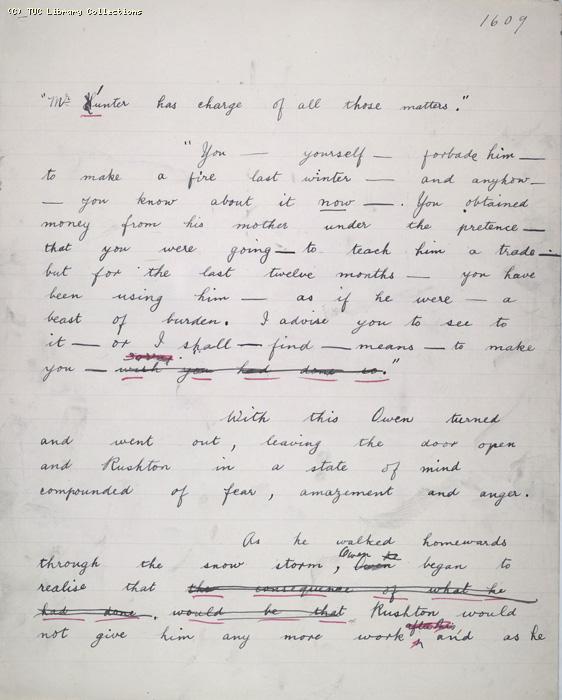 (C) TUC Library Collections
1609
"Mr Hunter has charge of all those matters."
"You — yourself — forbade him —
to make a fire last winter — and anyhow —
— you know about it now —. You obtained
money from his mother under the pretence —
that you were going — to teach him a trade —
but for the last twelve months — you have
been using him — as if he were — a
beast of burden. I advise you to see to
it — or I shall — find — means — to make
sorry
you — wish you had done so."
With this Owen turned
and went out, leaving the door open
and Rushton in a state of mind
compounded of fear, amazement and anger.
As he walked homewards
Owen he
through the snow storm, Owen began to
realise that the consequence of what he
had done. would be that Rushton would
after this
not give him any more work and as he